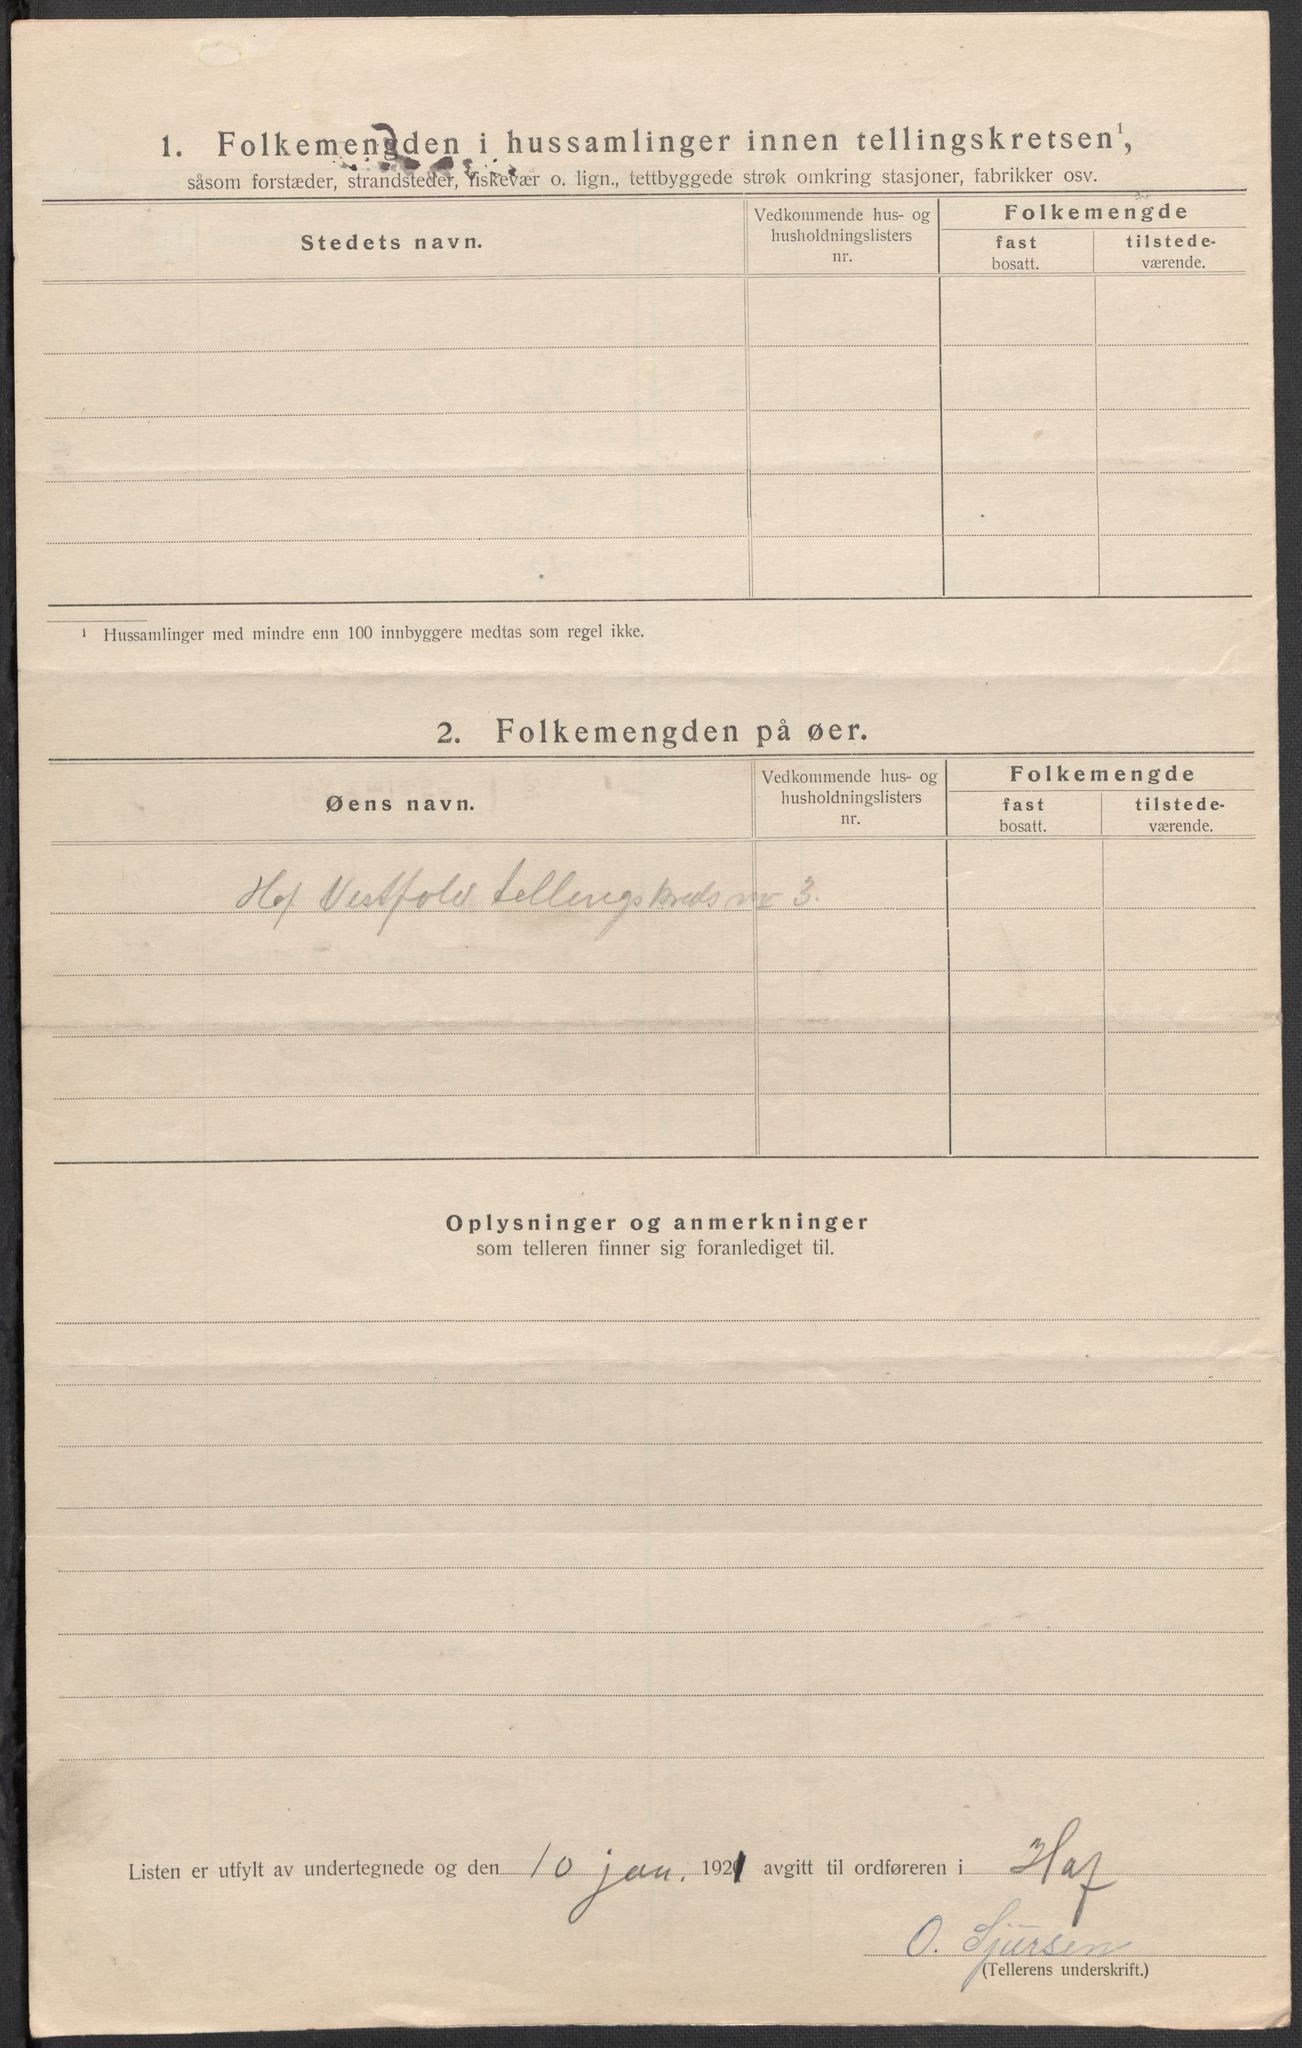 1. Folkemengden i hussamlinger innen tellingskretsen¹,
såsom forstæder, strandsteder, fiskevær o. lign., tettbyggede strøk omkring stasjoner, fabrikker osv.
Stedets navn.
Vedkommende hus- og
husholdningslisters
nr.
Folkemengde
fast
bosatt.
tilstede-
værende.
¹ Hussamlinger med mindre enn 100 innbyggere medtas som regel ikke.
2. Folkemengden på øer.
Øens navn.
Vedkommende hus- og
husholdningslisters
nr.
Folkemengde
fast
bosatt.
tilstede-
værende.
Hof Vestfold tellingskreds nr 3.
Oplysninger og anmerkninger
som telleren finner sig foranlediget til.
Listen er utfylt av undertegnede og den 10 jan. 1921 avgitt til ordføreren i Hof
O. Sjursen
(Tellerens underskrift.)